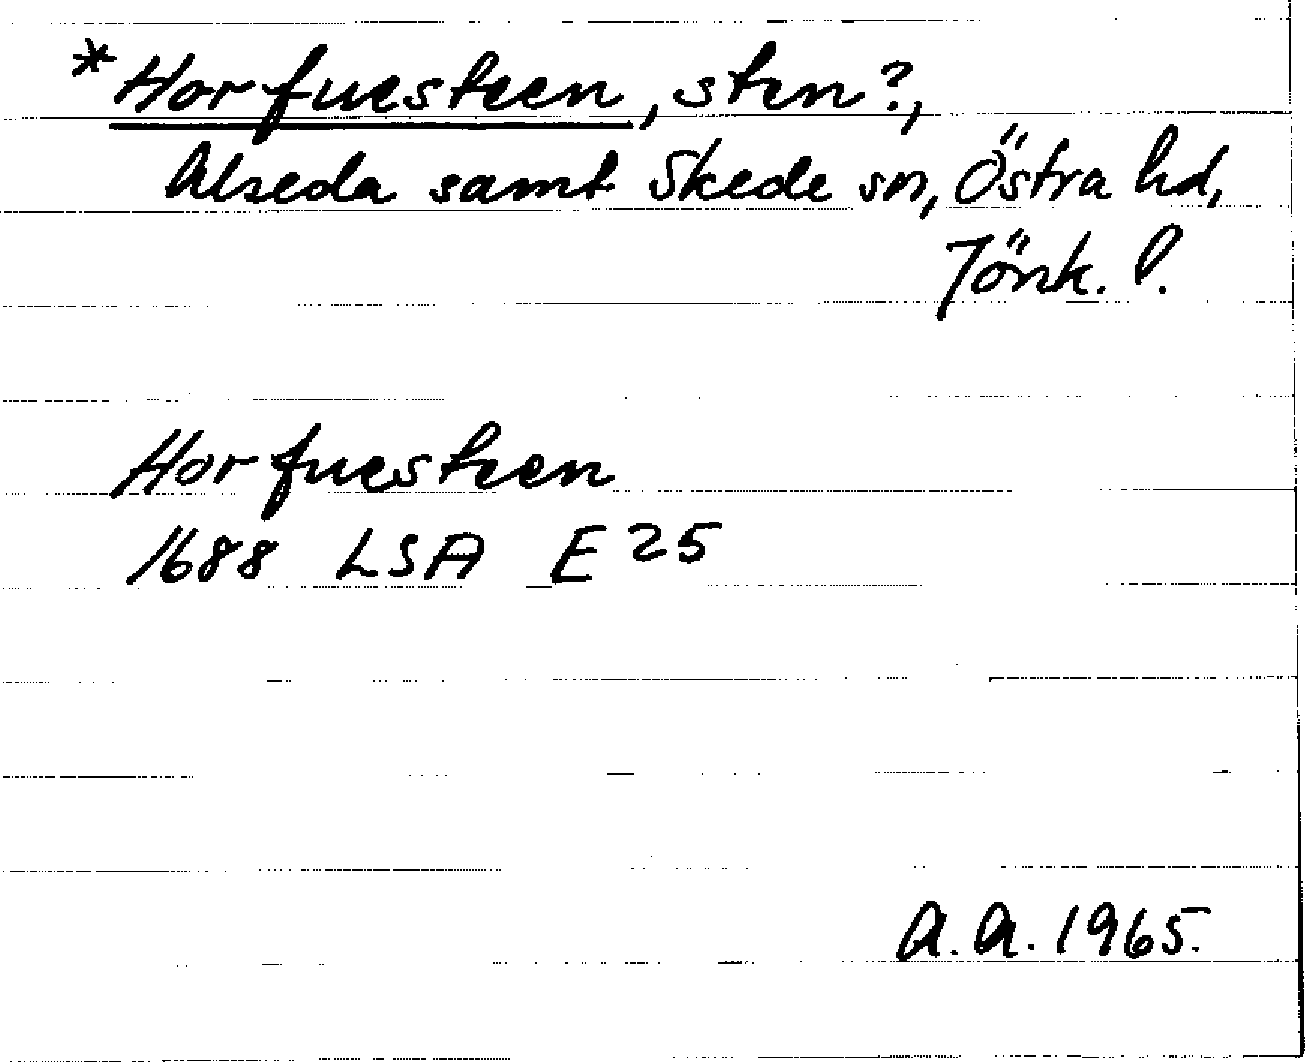 *Horfuesteen, sten?,
Alseda samt Skede sn, Östra hd,
Jönk. l.
Horfuesteen
1688 LSA E 25
A.A. 1965.